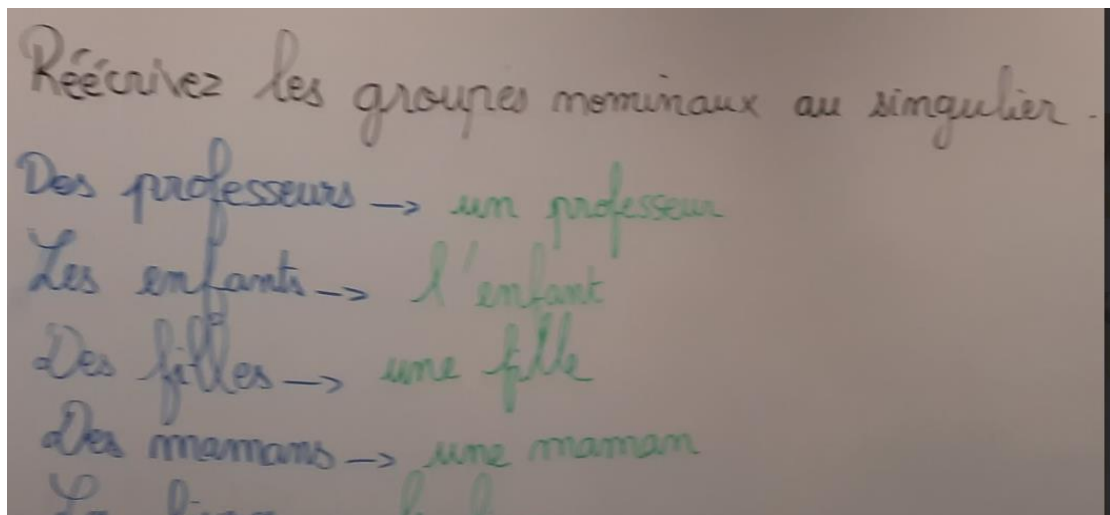 Réécrivez les groupes nominaux au singulier.
Des professeurs -> un professeur
Les enfants -> l'enfant
Des filles -> une fille
Des mamans -> une maman